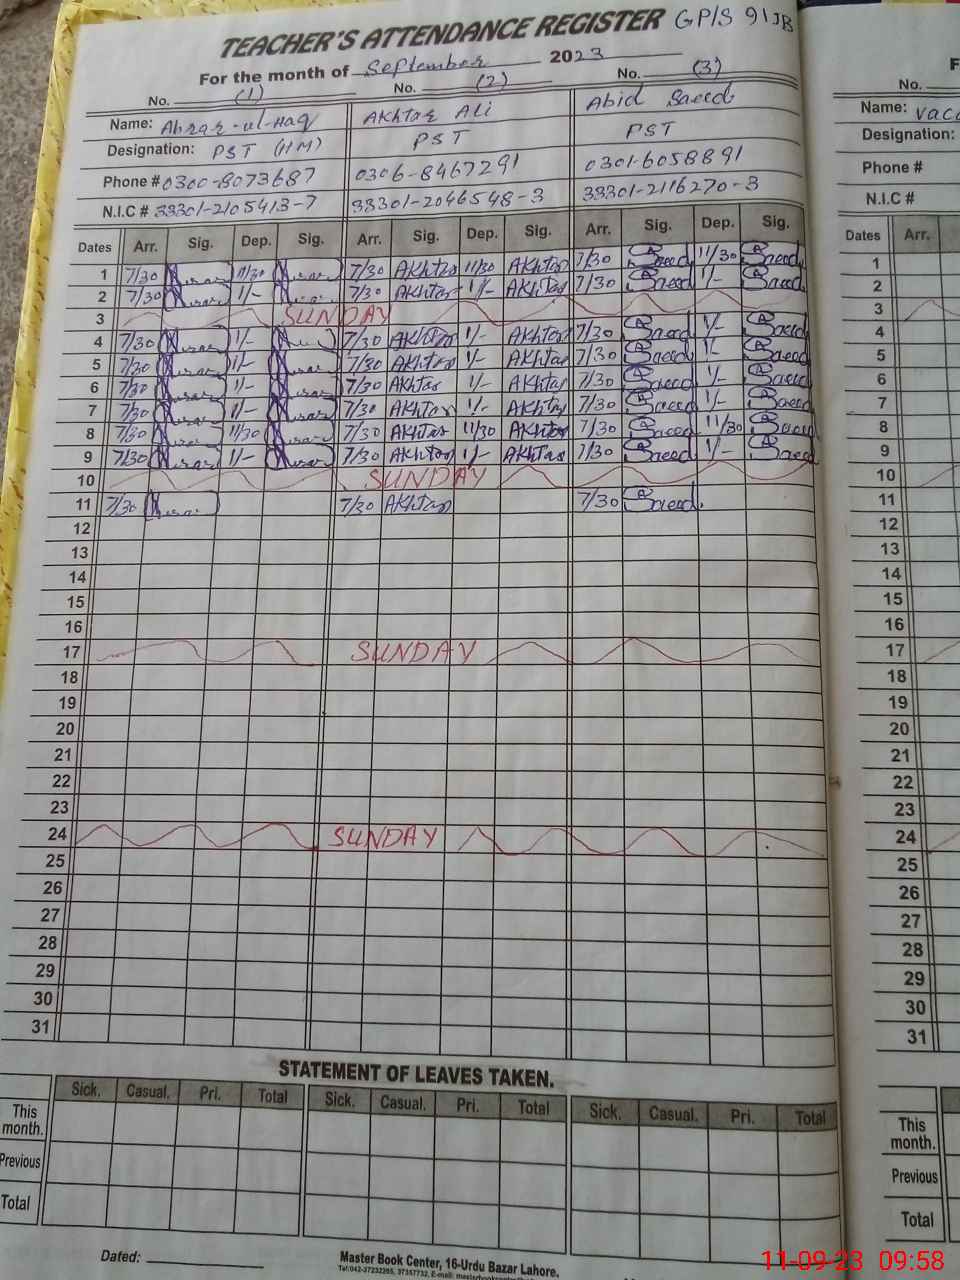 TEACHER'S ATTENDANCE REGISTER GP/S 91JB
For the month of September 2023
No. (1) No. (2) No. (3)
Name: Abrar-ul-Haq Akhtar Ali Abid Saeed
Designation: PST (HM) PST PST
Phone # 0300-8073687 0306-8467291 0301-6058891
N.I.C # 33301-2105413-7 33301-2046548-3 33301-2116270-3
Dates Arr. Sig. Dep. Sig. Arr. Sig. Dep. Sig. Arr. Sig. Dep. Sig.
1 7/30 11/30 7/30 Akhtar 11/30 Akhtar 7/30 Saeed 11/30 Saeed
2 7/30 1/- 7/30 Akhtar 1/- Akhtar 7/30 Saeed 1/- Saeed
3 SUNDAY
4 7/30 1/- 7/30 Akhtar 1/- Akhtar 7/30 Saeed 1/- Saeed
5 7/30 1/- 7/30 Akhtar 1/- Akhtar 7/30 Saeed 1/- Saeed
6 7/30 1/- 7/30 Akhtar 1/- Akhtar 7/30 Saeed 1/- Saeed
7 7/30 1/- 7/30 Akhtar 1/- Akhtar 7/30 Saeed 1/- Saeed
8 7/30 11/30 7/30 Akhtar 11/30 Akhtar 7/30 Saeed 11/30 Saeed
9 7/30 1/- 7/30 Akhtar 1/- Akhtar 7/30 Saeed 1/- Saeed
10 SUNDAY
11 7/30 7/30 Akhtar 7/30 Saeed
12
13
14
15
16
17 SUNDAY
18
19
20
21
22
23
24 SUNDAY
25
26
27
28
29
30
31
STATEMENT OF LEAVES TAKEN.
Sick. Casual. Pri. Total Sick. Casual. Pri. Total Sick. Casual. Pri. Total
This month.
Previous
Total
Dated:
Master Book Center, 16-Urdu Bazar Lahore.
F
No.
Name: Vaca
Designation:
Phone #
N.I.C #
Dates Arr.
1
2
3
4
5
6
7
8
9
10
11
12
13
14
15
16
17
18
19
20
21
22
23
24
25
26
27
28
29
30
31
This month.
Previous
Total
11-09-23 09:58